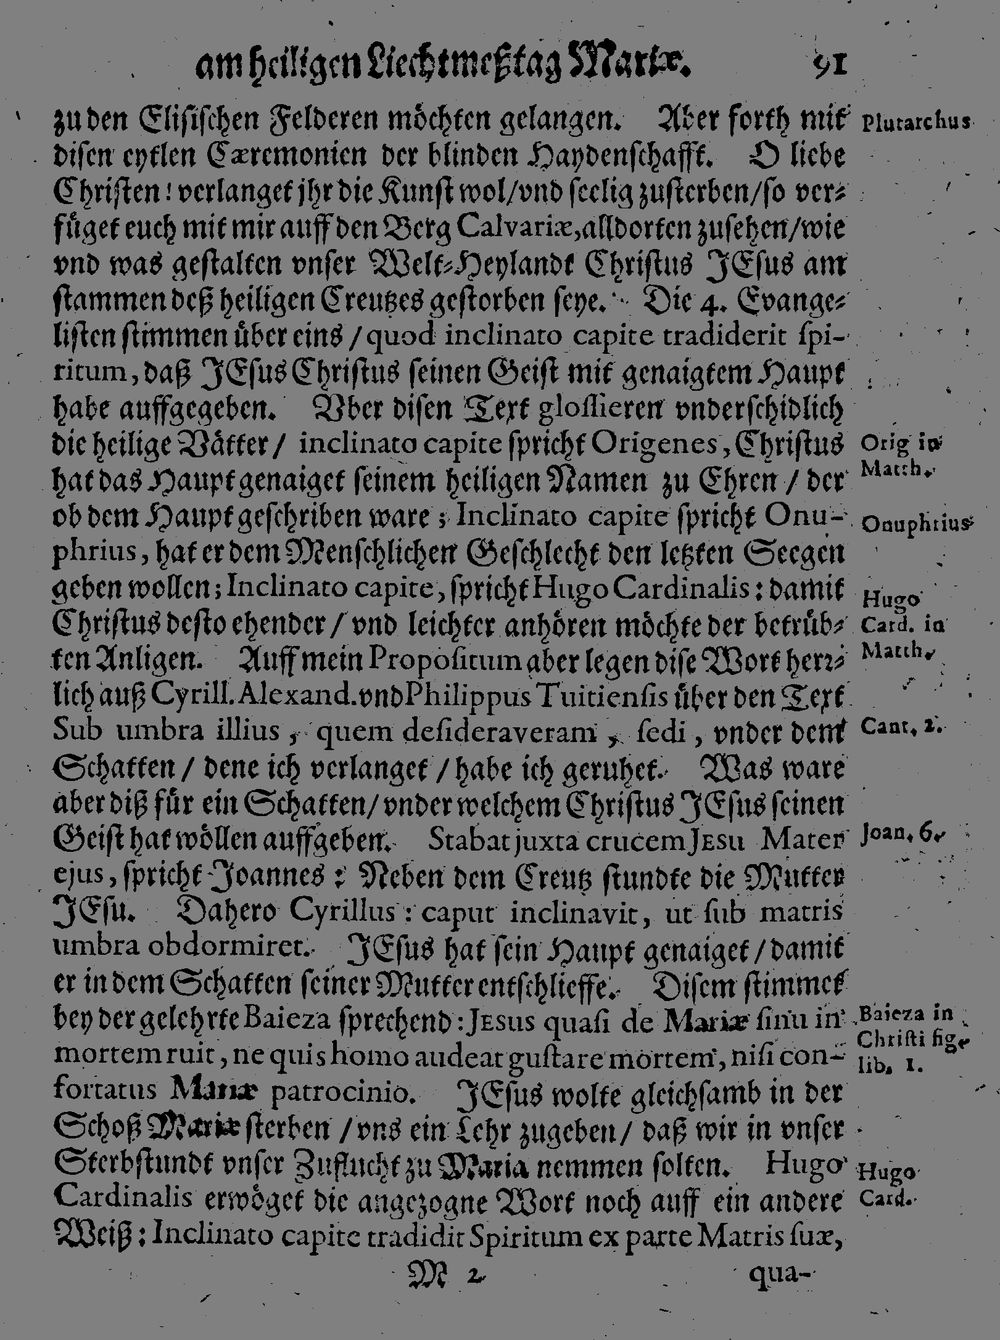 am heiligen Liechtmeßtag Mariæ. 91
zu den Elisischen Felderen möchten gelangen. Aber forth mit
Plutarchus
disen eytlen Cæremonien der blinden Haydenschafft. O liebe
Christen! verlanget jhr die Kunst wol/vnd seelig zusterben/so ver-
füget euch mit mir auff den Berg Calvariæ, alldorten zusehen/wie
vnd was gestalten vnser Welt-Heylandt Christus JEsus am
stammen deß heiligen Creutzes gestorben seye. Die 4. Evange-
listen stimmen über eins / quod inclinato capite tradiderit spi-
ritum, daß JEsus Christus seinen Geist mit genaigtem Haupt
habe auffgegeben. Vber disen Text glossieren vnderschidlich
die heilige Vätter / inclinato capite spricht Origenes, Christus
Orig in
Matth.
hat das Haupt genaiget seinem heiligen Namen zu Ehren / der
ob dem Haupt geschriben ware; Inclinato capite spricht Onu-
Onuphrius
phrius, hat er dem Menschlichen Geschlecht den letzten Seegen
geben wollen; Inclinato capite, spricht Hugo Cardinalis: damit
Hugo
Card. in
Matth.
Christus desto ehender / vnd leichter anhören möchte der betrüb-
ten Anligen. Auff mein Propositum aber legen dise Wort herr-
lich auß Cyrill. Alexand. vnd Philippus Tuitiensis über den Text
Sub umbra illius, quem desideraveram, sedi, vnder dem
Cant. 2.
Schatten / dene ich verlanget / habe ich geruhet. Was ware
aber diß für ein Schatten/ vnder welchem Christus JEsus seinen
Geist hat wöllen auffgeben. Stabat juxta crucem JEsu Mater
Joan. 6.
ejus, spricht Joannes: Neben dem Creutz stundte die Mutter
JEsu. Dahero Cyrillus: caput inclinavit, ut sub matris
umbra obdormiret. JEsus hat sein Haupt genaiget / damit
er in dem Schatten seiner Mutter entschlieffe. Disem stimmet
bey der gelehrte Baieza sprechend: JEsus quasi de Mariæ sinu in
Baieza in
Christi fig.
lib. 1.
mortem ruit, ne quis homo audeat gustare mortem, nisi con-
fortatus Mariæ patrocinio. JEsus wolte gleichsamb in der
Schoß Mariæ sterben / vns ein Lehr zugeben / daß wir in vnser
Sterbstundt vnser Zuflucht zu Maria nemmen solten. Hugo
Hugo
Card.
Cardinalis erwöget die angezogne Wort noch auff ein andere
Weiß: Inclinato capite tradidit Spiritum ex parte Matris suæ,
M 2 qua-